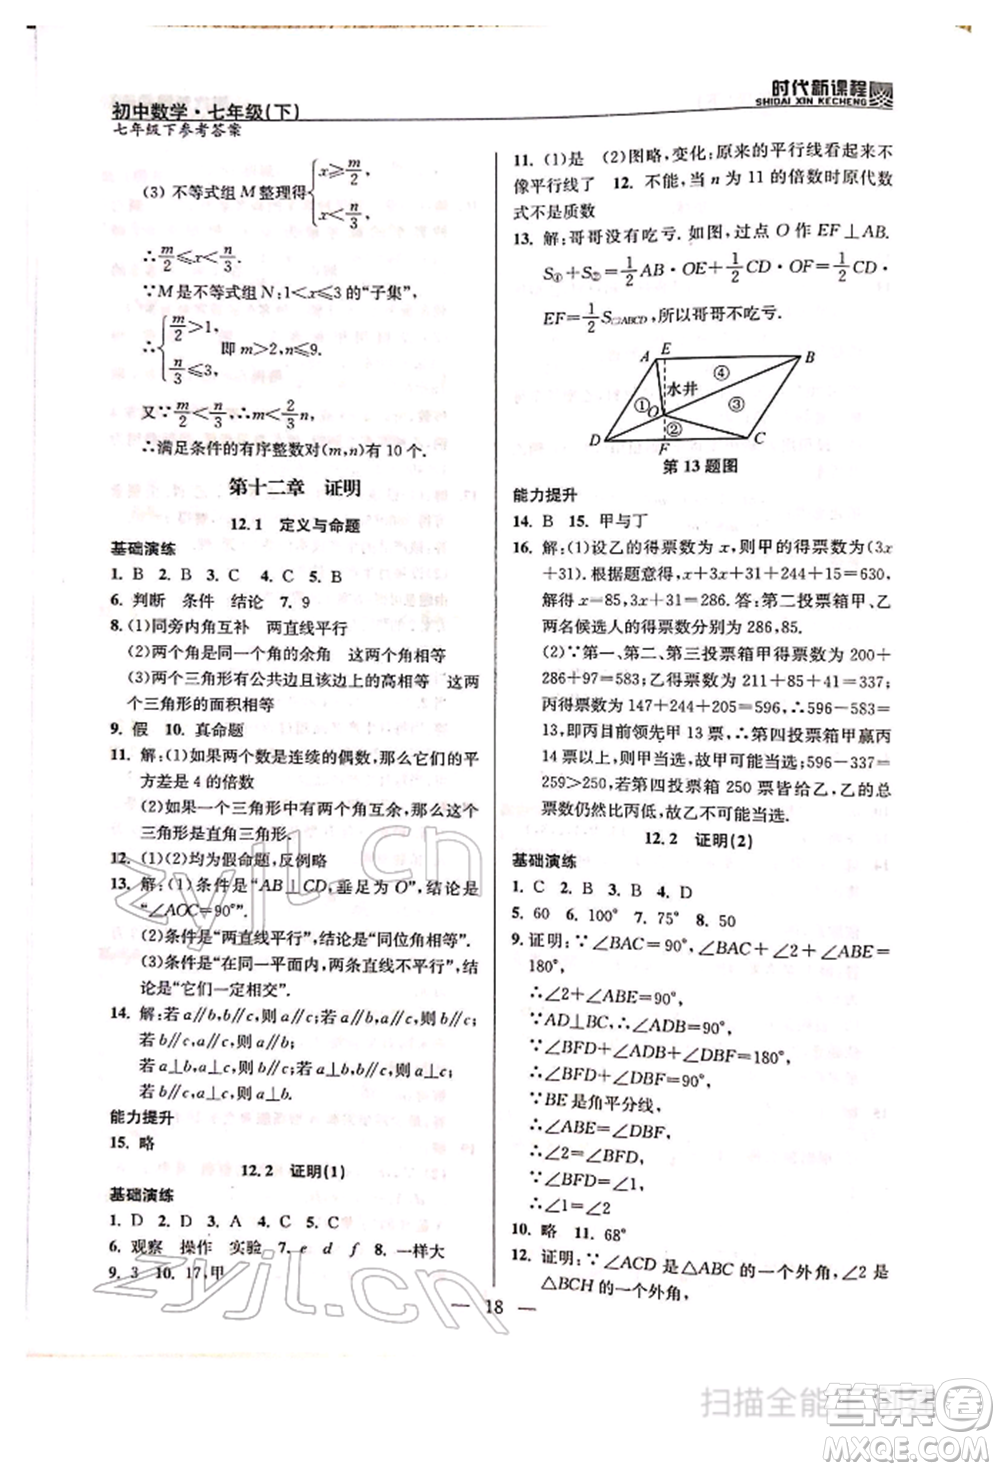 初中数学·七年级(下)
七年级下参考答案
时代新课程
SHIDAI XIN KECHENG
(3) 不等式组 M 整理得{x≥m/2, x<n/3,
∴m/2≤x<n/3.
∵M 是不等式组 N:1<x≤3 的“子集”,
∴{m/2>1, n/3≤3, 即 m>2,n≤9.
又∵m/2<n/3,∴m<2/3n,
∴满足条件的有序整数对(m,n)有 10 个.
第十二章 证明
12.1 定义与命题
基础演练
1. B 2. B 3. C 4. C 5. B
6. 判断 条件 结论 7. 9
8. (1)同旁内角互补 两直线平行
(2)两个角是同一个角的余角 这两个角相等
(3)两个三角形有公共边且该边上的高相等 这两
个三角形的面积相等
9. 假 10. 真命题
11. 解:(1)如果两个数是连续的偶数,那么它们的平
方差是 4 的倍数
(2)如果一个三角形中有两个角互余,那么这个
三角形是直角三角形.
12. (1)(2)均为假命题,反例略
13. 解:(1)条件是“AB⊥CD,垂足为 O”,结论是
“∠AOC=90°”.
(2)条件是“两直线平行”,结论是“同位角相等”.
(3)条件是“在同一平面内,两条直线不平行”,结
论是“它们一定相交”.
14. 解:若 a∥b,b∥c,则 a∥c;若 a∥b,a∥c,则 b∥c;
若 b∥c,a∥c,则 a∥b;
若 a⊥b,a⊥c,则 b∥c;若 b∥c,a⊥b,则 a⊥c;
若 b∥c,a⊥c,则 a⊥b.
能力提升
15. 略
12.2 证明(1)
基础演练
1. D 2. D 3. A 4. C 5. C
6. 观察 操作 实验 7. e d f 8. 一样大
9. 3 10. 17,甲
11. (1)是 (2)图略,变化:原来的平行线看起来不
像平行线了 12. 不能,当 n 为 11 的倍数时原代数
式不是质数
13. 解:哥哥没有吃亏. 如图,过点 O 作 EF⊥AB.
S④+S②=1/2AB·OE+1/2CD·OF=1/2CD·
EF=1/2S▱ABCD,所以哥哥不吃亏.
A E B
④
水井
① O ③
②
D F C
第 13 题图
能力提升
14. B 15. 甲与丁
16. 解:(1)设乙的得票数为 x,则甲的得票数为(3x
+31). 根据题意得,x+3x+31+244+15=630,
解得 x=85,3x+31=286. 答:第二投票箱甲、乙
两名候选人的得票数分别为 286,85.
(2)∵第一、第二、第三投票箱甲得票数为 200+
286+97=583;乙得票数为 211+85+41=337;
丙得票数为 147+244+205=596,∴596-583=
13,即丙目前领先甲 13 票,∴第四投票箱甲赢丙
14 票以上,则甲当选,可能;596-337=259,
259>250,若第四投票箱 250 票皆给乙,乙的总
票数仍然比丙低,故乙不可能当选.
12.2 证明(2)
基础演练
1. C 2. B 3. B 4. D
5. 60 6. 100° 7. 75° 8. 50
9. 证明:∵∠BAC=90°,∠BAC+∠2+∠ABE=
180°,
∴∠2+∠ABE=90°,
∵AD⊥BC,∴∠ADB=90°,
∴∠BFD+∠DBF+∠ADB=180°,
∴∠BFD+∠DBF=90°,
∵BE是角平分线,
∴∠ABE=∠DBF,
∴∠2=∠BFD,
∵∠BFD=∠1,
∴∠1=∠2
10. 略 11. 68°
12. 证明:∵∠ACD 是△ABC 的一个外角,∠2 是
△BCH 的一个外角,
— 18 —
zyjl.cn
zyjl.cn
答案圈
MXQE.COM